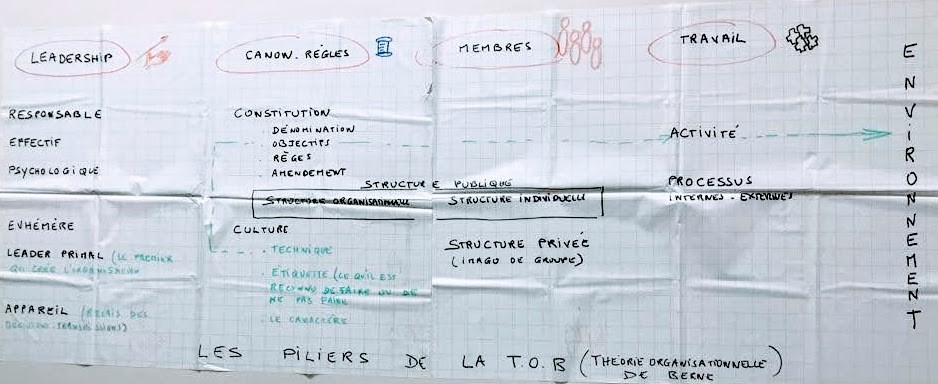 LEADERSHIP
RESPONSABLE
EFFECTIF
PSYCHOLOGIQUE
EVHÉMÈRE
LEADER PRIMAL (LE PREMIER
QUI CRÉE L'ORGANISATION
APPAREIL (RELAIS DES
CANON. RÈGLES
CONSTITUTION
. DÉNOMINATION
. OBJECTIFS
. RÈGES
. AMENDEMENT
STRUCTURE PUBLIQUE
STRUCTURE ORGANISATIONNELLE
STRUCTURE INDIVIDUELLE
CULTURE
. TECHNIQUE
. ETIQUETTE (CE QU'IL EST
RECONNU DE FAIRE OU DE
NE PAS FAIRE
. LE CARACTÈRE
MEMBRES
STRUCTURE PRIVÉE
(IMAGO DE GROUPE)
TRAVAIL
ACTIVITÉ
PROCESSUS
INTERNES - EXTERNES
ENVIRONNEMENT
LES PILIERS DE LA T.O.B (THEORIE ORGANISATIONNELLE
DE BERNE)